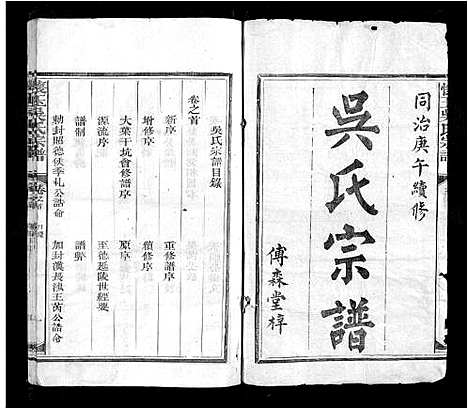 同治庚午續修
吳氏宗譜
傅森堂梓
吳氏宗譜目錄
卷之首
新序
重修譜序
增修序
續修序
大葉干坑會修譜序
原序
源流序
至德延陵世經
譜制
譜箴
勅封昭德侯季札公誥命
加封漢長沙王芮公誥命